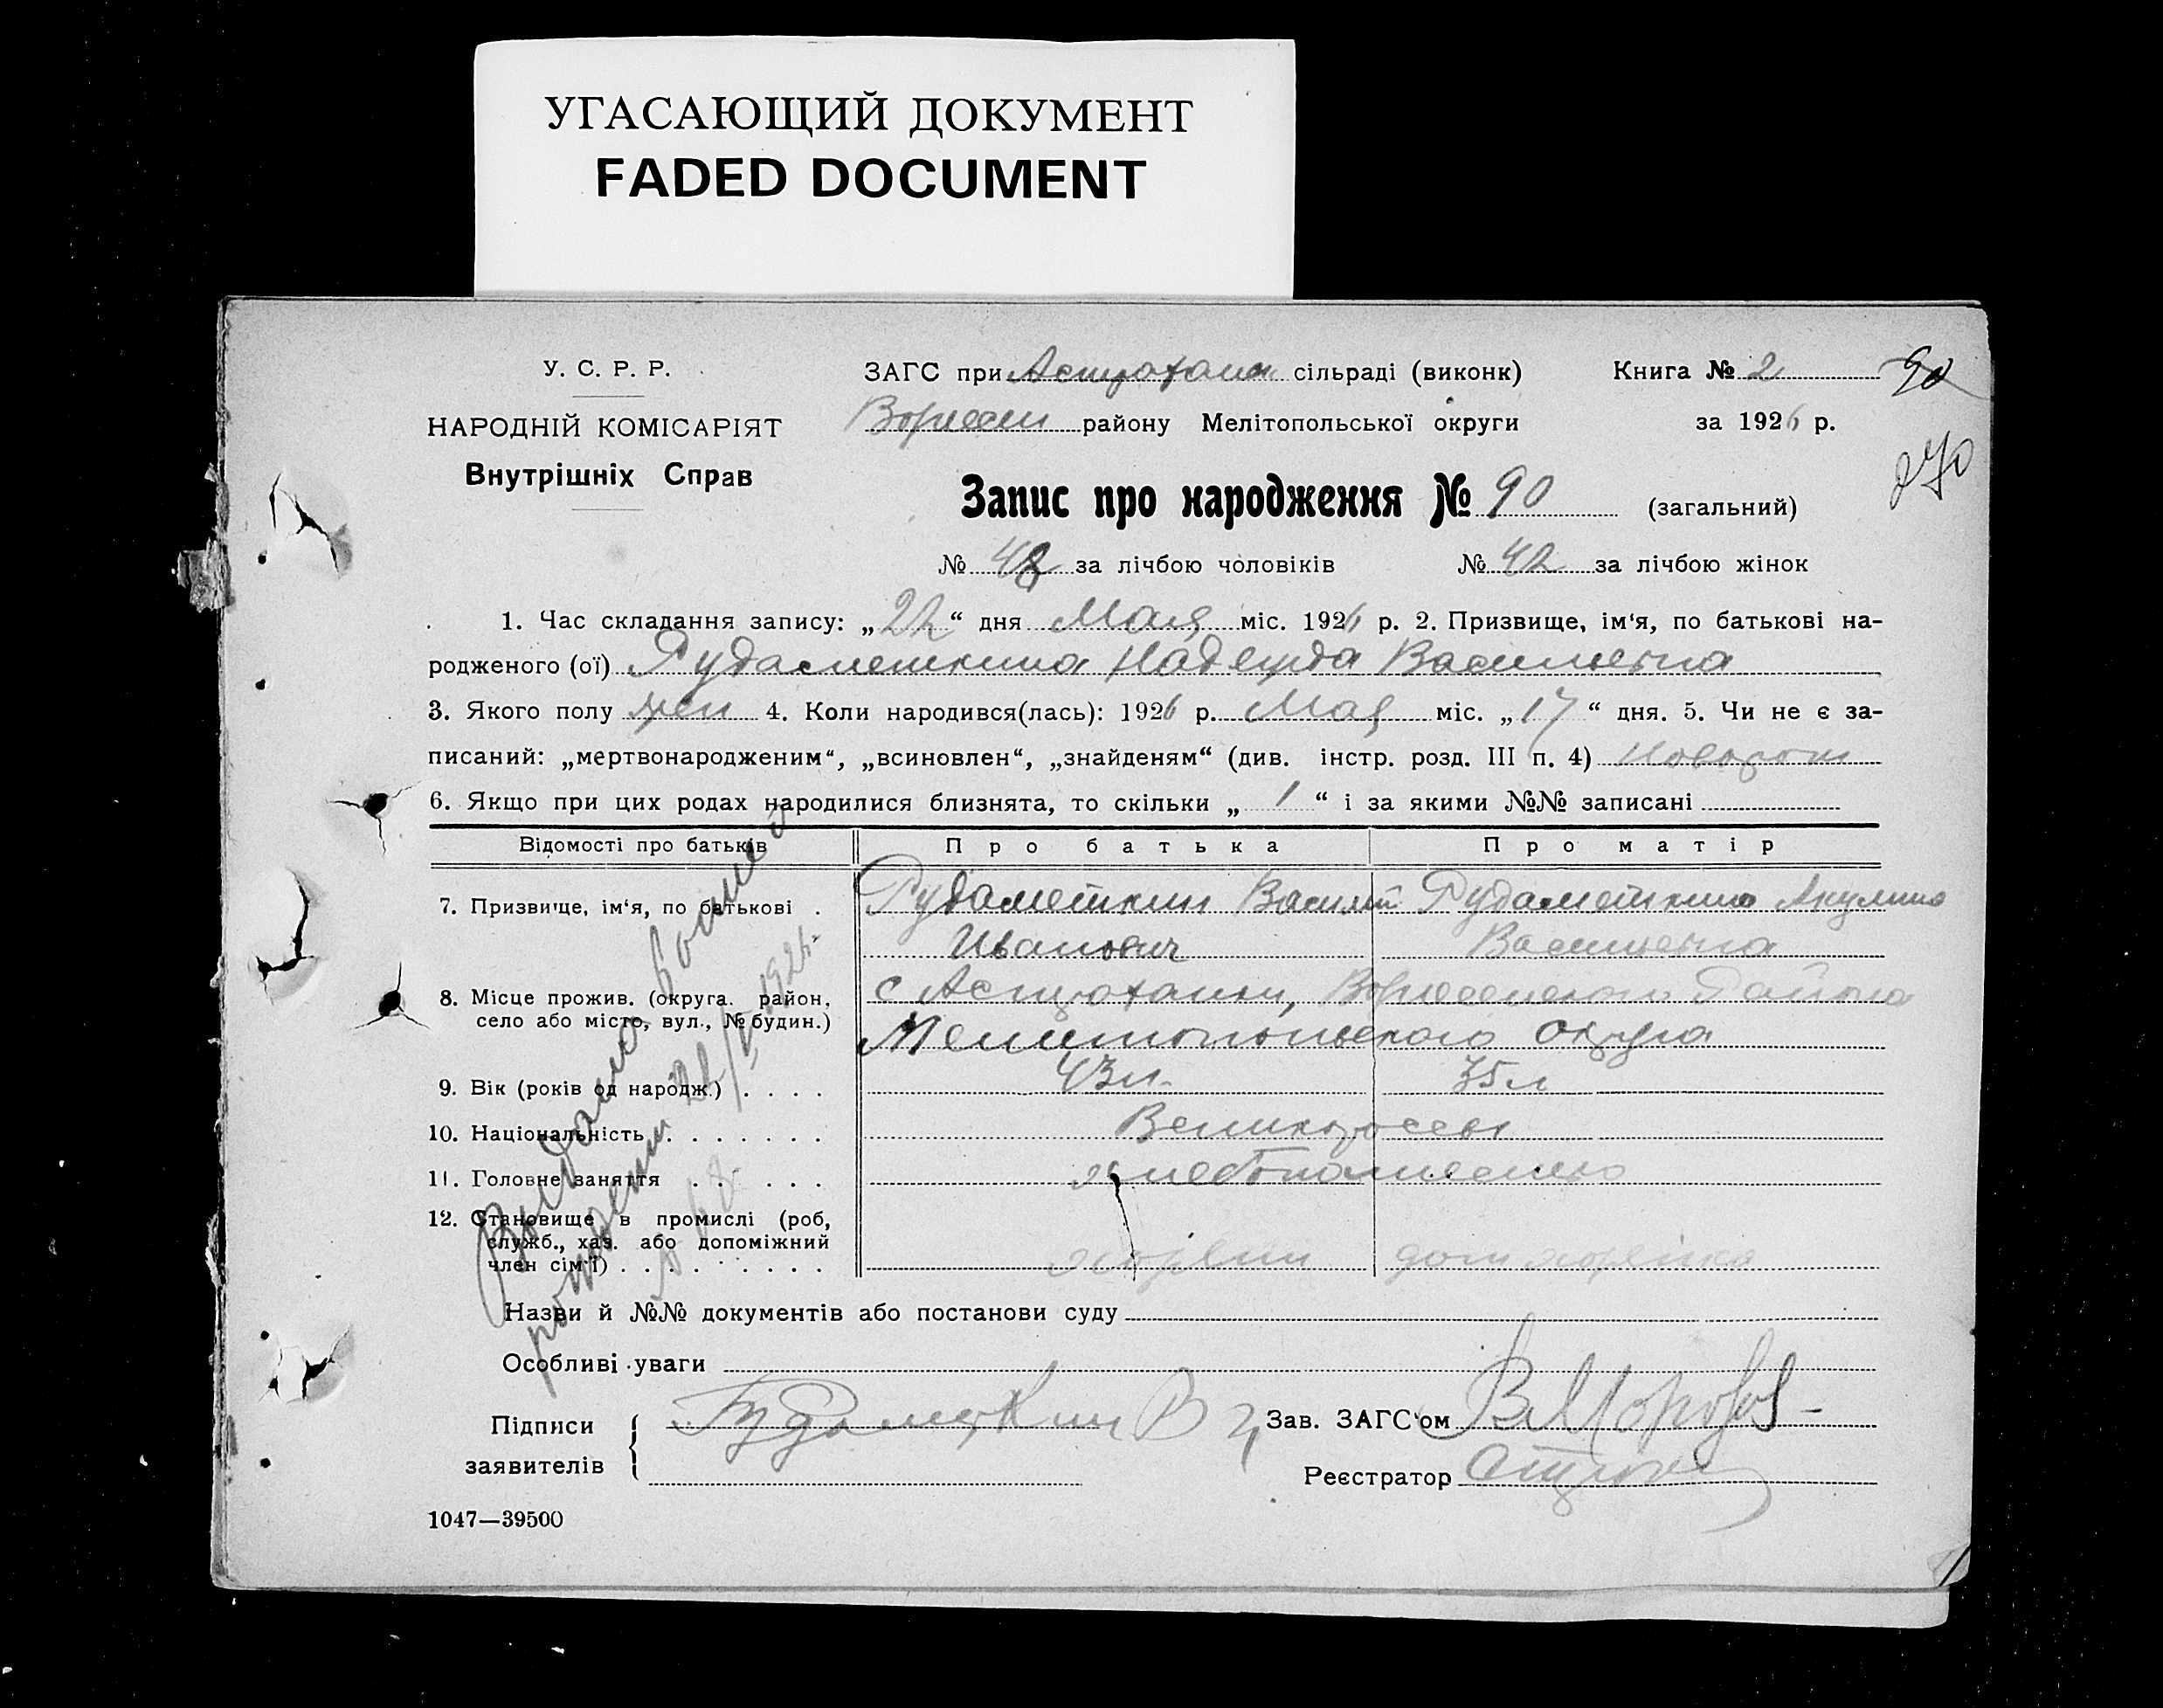 УГАСАЮЩИЙ ДОКУМЕНТ
FADED DOCUMENT
У. С. Р. Р.
НАРОДНІЙ КОМІСАРІЯТ
Внутрішніх Справ
ЗАГС при Астрахан сільраді (виконк)
района Мелітопольської округи
Книга № 2
за 1926 р.
90
270
Запис про народження № 90 (загальний)
№ 48 за лічбою чоловіків № 42 за лічбою жінок
1. Час складання запису: „22“ дня Мая міс. 1926 р. 2. Призвище, ім‘я, по батькові на-
родженого (ої) Рудаметкина Надежда Васильевна
3. Якого полу жен 4. Коли народився(лась): 1926 р. Мая міс. „17“ дня. 5. Чи не є за-
писаний: „мертвонародженим“, „всиновлен“, „знайденям“ (див. інстр. розд. III п. 4) Наворож
6. Якщо при цих родах народилися близнята, то скільки „ 1 “ і за якими №№ записані
Відомості про батьків Про батька Про матір
7. Призвище, ім‘я, по батькові . Рудаметкин Василий Рудаметкина Акулина
Иванович Васильевна
8. Місце прожив. (округа. район, с Астраханки, Вознесенского Района
село або місто, вул., № будин.) Мелитопольского Округа
9. Вік (років од народж.) . . . . 43 л. 35 л
10. Національність . . . . . . . Великороссы
11. Головне заняття . . . . . . хлебопашество
12. Становище в промислі (роб,
служб., хаз. або допоміжний
член сім‘ї) . . . . . . . . . хозяин дом хозяйка
Назви й №№ документів або постанови суду
Особливі уваги
Підписи
заявителів
Рудаметкин В
Зав. ЗАГС‘ом В Морозов
Реєстратор
1047—39500
Выдана
рожден 22/V 1926.
№ 68